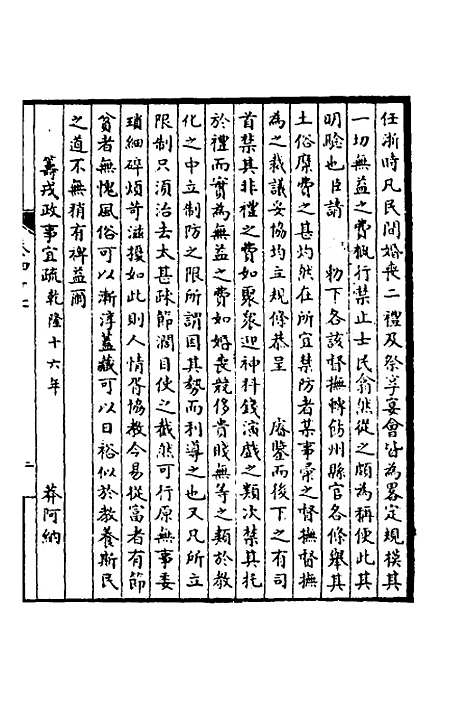 任浙時凡民間婚喪二禮及祭享宴會皆為畧定規模其
一切無益之費概行禁止士民翕然從之頗為稱便此其
明騐也臣請　勅下各該督撫轉飭州縣官各條舉其
土俗糜費之甚灼然在所宜禁防者某事彙之督撫督撫
為之裁議妥協均立規條恭呈　睿鑒而後下之有司
首禁其非禮之費如聚衆迎神科錢演戲之類次禁其托
於禮而實為無益之費如婚喪競侈貴賤無等之類於教
化之中立制防之限所謂因其勢而利導之也又凡所立
限制只須治去太甚疎節濶目使之截然可行原無事委
瑣細碎煩苛滋擾如此則人情胥協教令易從富者有節
貧者無愧風俗可以漸淳蓋藏可以日裕似於教養斯民
之道不無稍有裨益爾
籌戎政事宜疏乾隆十六年　莽阿納
二